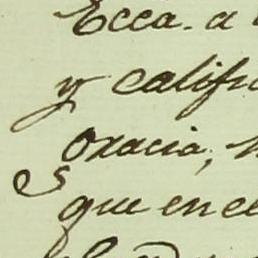 Ecca. a
y califi
oracia,
que en el